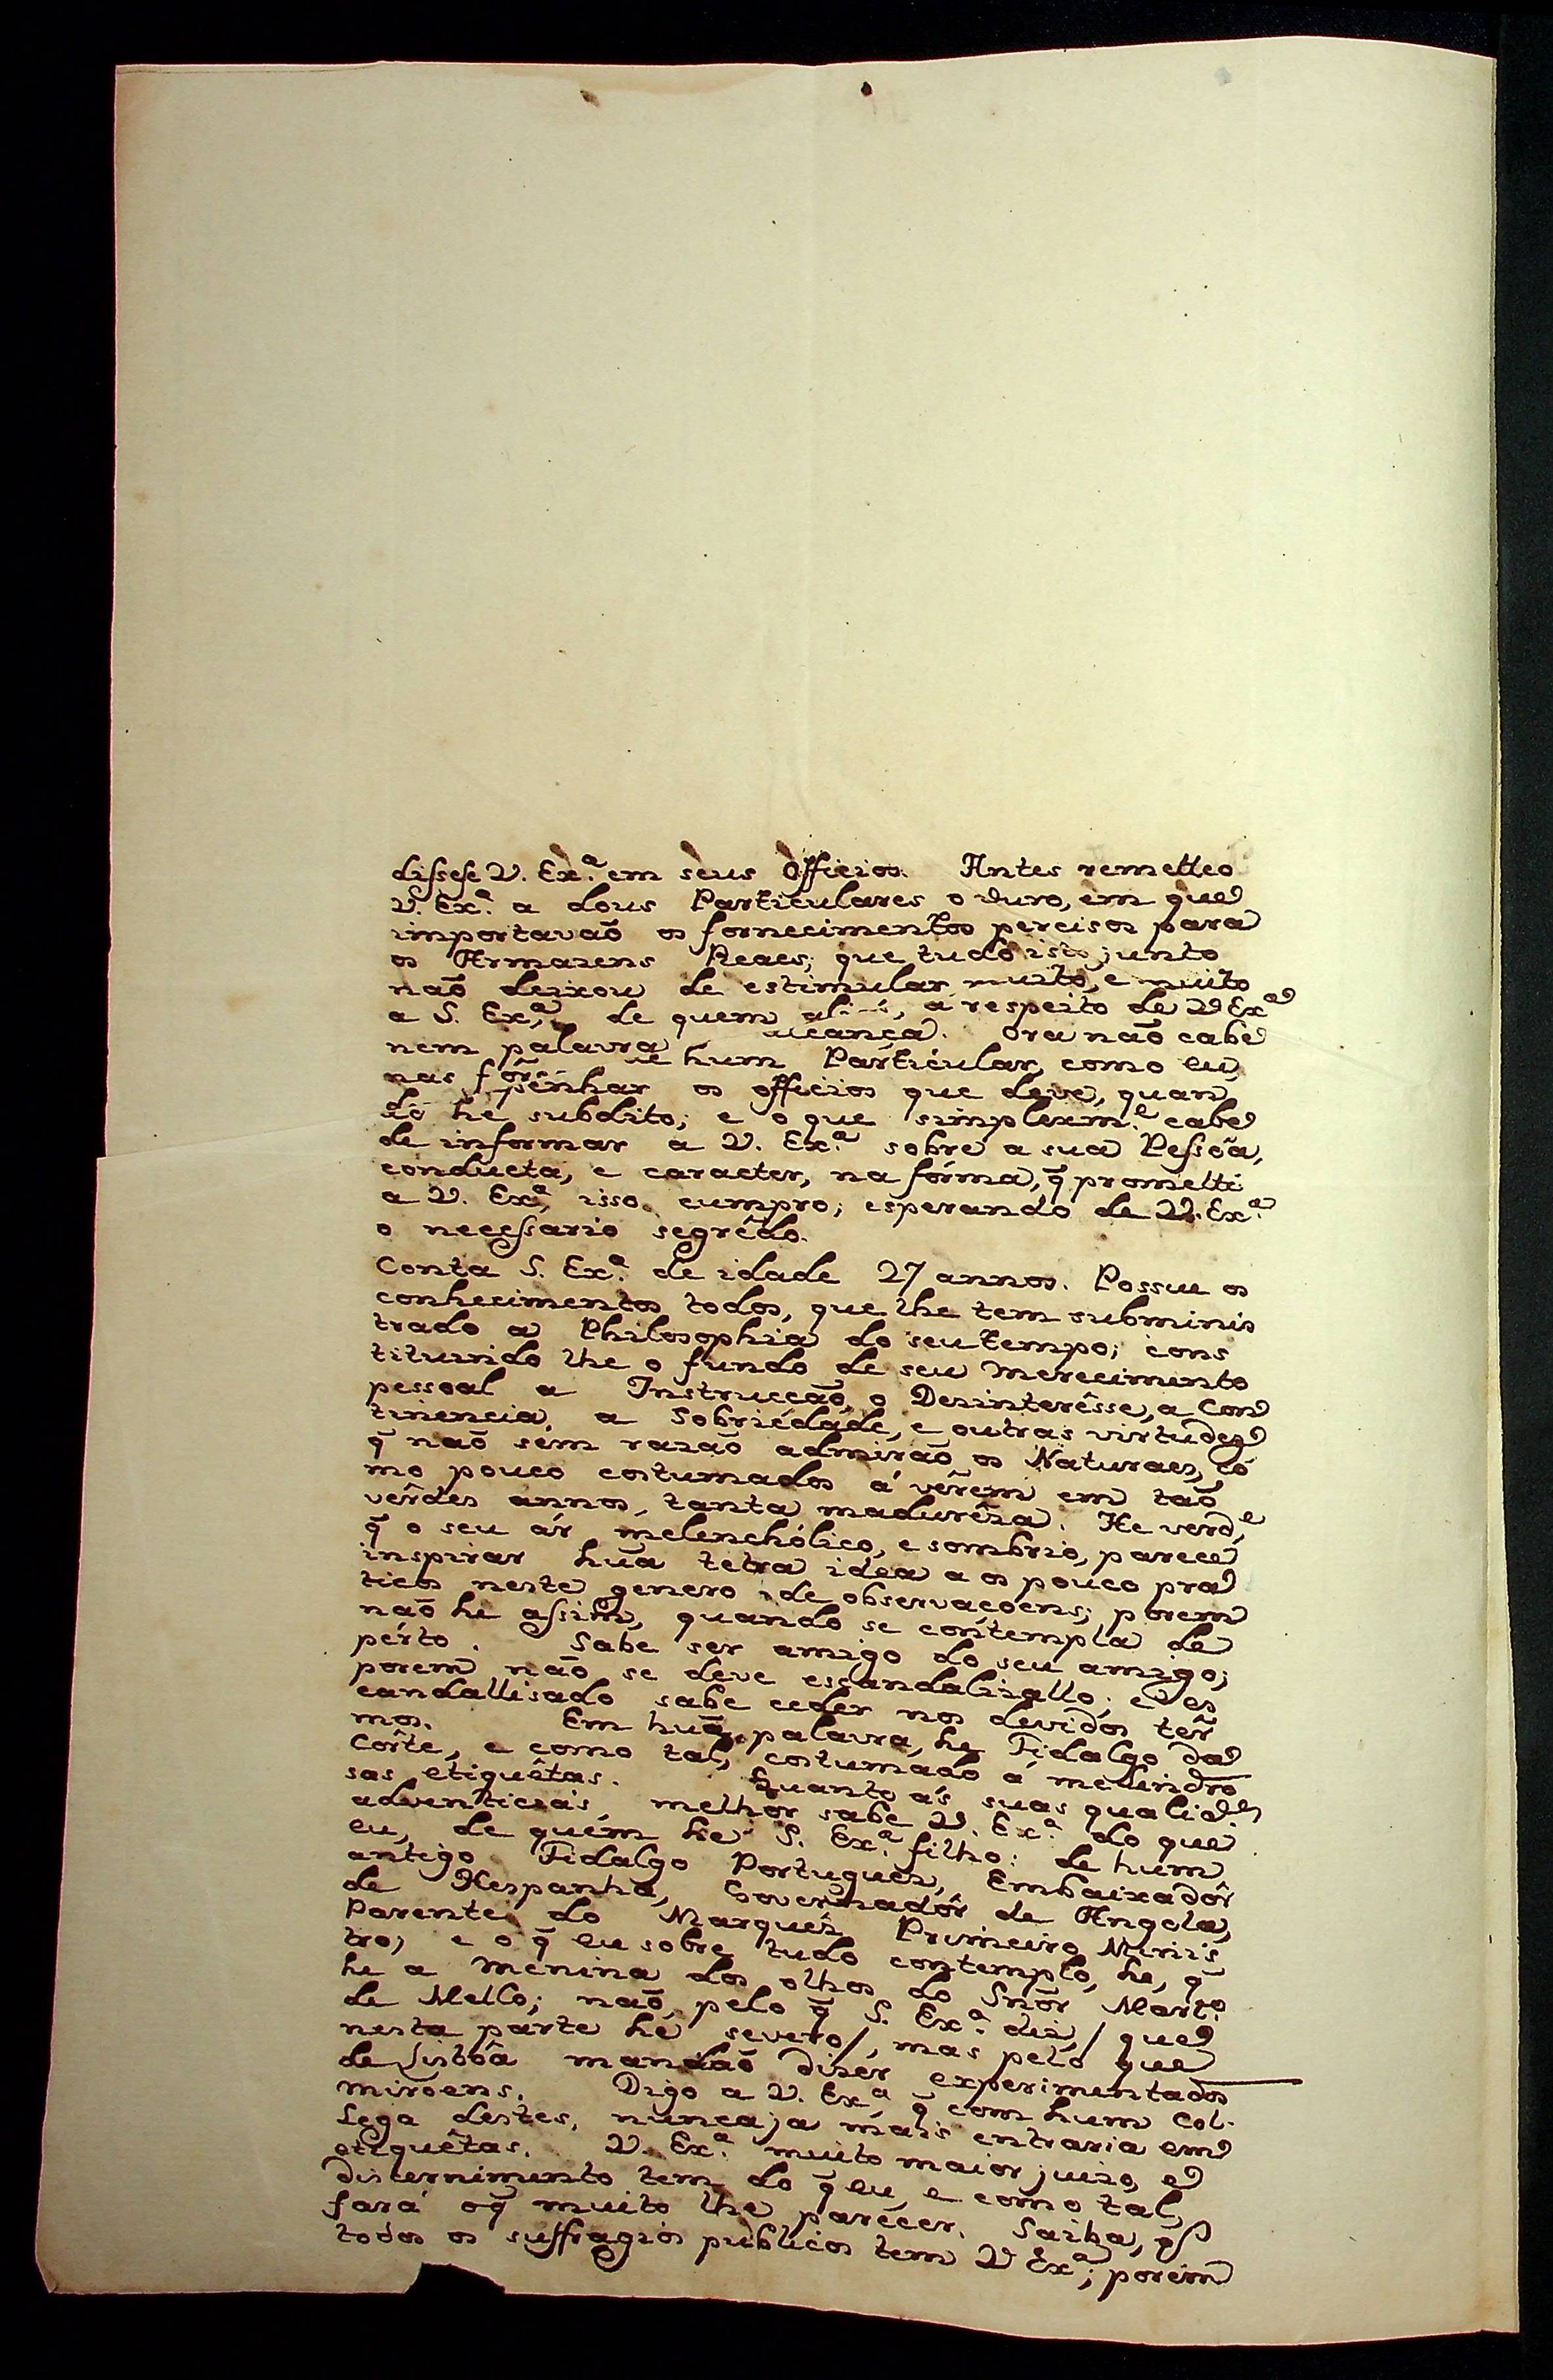 dissese V. Ex.ª em seus Officios. Antes remetteo
V. Ex.ª a dous Particulares o ouro, em que
importavaõ os fornecimentos percisos para
os Armazens Reaes; que tudo isto junto
naõ deixou de estimular muito, e muito
a S. Ex.ª, de quem a respeito de V Ex.ª
nem palavra alcança. Ora naõ cabe
nas hum Particular, como eu,
os officios que deve, quan
do he subdito; e o que simplexm.e cabe
de informar a V. Ex.ª sobre a sua Pessôa,
conducta, e caracter, na fórma, q̃ prometti
a V. Ex.ª, isso cumpro; esperando de V. Ex.ª
o necessario segrêdo.
Conta S. Ex.ª de idade 27 annos. Possue os
conhecimentos todos, que lhe tem subminis
trado a Philosophia do seu tempo; cons
tituindo lhe o fundo de seu merecimento
pessoal a Instrucçaõ, o Dezinterêsse, a Con
tinencia, a Sobriédade, e outras virtudes
q̃ naõ sem razaõ admiraõ os Naturaes, có
mo pouco costumados á vêrem em taõ
vêrdes annos, tanta madurêza. He verd.e
q̃ o seu ár melenchólico, e sombrio, parece
inspirar hũa tetra idea a os pouco pra
ticos neste genero de observaçoens; porem
naõ he assim, quando se contempla de
pérto. Sabe ser amigo do seu amigo;
porem naõ se deve escandalizallo; e es
candallisado sabe ceder nos devidos ter
mos. Em huã palavra, he Fidalgo da
Côrte, e como tal, costumado á melindro
sas etiquêtas. Quanto ás suas qualid.es
adventiciais, melhor sabe V. Ex.ª do que
eu, de quem he S. Ex.ª filho: de hum
antigo Fidalgo Portuguez, Embaixadôr
de Hespanha, Governadôr de Angola,
Parente do Marquêz Primeiro Minis
tro; e o q̃ eu sobre tudo contemplo, he, q̃
he a Menina dos olhos do Snõr Mart.o
de Mello; naõ, pelo q̃ S. Ex.ª diz, / que
nesta parte he severo/, mas pelo que
de Lisbôa mandaõ dizer experimentados
miroens. Digo a V. Ex.ª, q̃ com hum Col-
lega destes, nunca já mais entraria em
etiquêtas. V. Ex.ª muito maior juizo, e
discernimento tem do q̃ eu, e como tal,
fará oq̃ muito lhe parécer. Saiba, q̃
todos os suffragios publicos tem V Ex.ª; porem